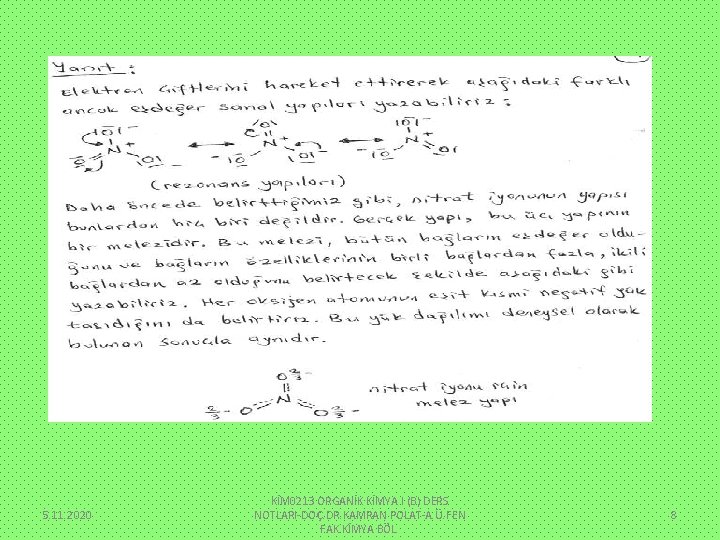 Yanıt :
Elektron çiftlerini hareket ettirerek aşağıdaki farklı
ancak eşdeğer sanal yapıları yazabiliriz :
(rezonans yapıları)
Daha öncede belirttiğimiz gibi, nitrat iyonunun yapısı
bunlardan hiç biri değildir. Gerçek yapı, bu üçü yapının
bir melezidir. Bu melezi, bütün bağların eşdeğer oldu-
ğunu ve bağların özelliklerinin birli bağlardan fazla, ikili
bağlardan az olduğunu belirtecek şekilde aşağıdaki gibi
yazabiliriz. Her oksijen atomunun eşit kısmi negatif yük
taşıdığını da belirtiriz. Bu yük dağılımı deneysel olarak
bulunan sonuçla aynıdır.
O 2/3 -
2/3 - O N O 2/3 -
nitrat iyonu için
melez yapı
5.11.2020
KİM0213 ORGANİK KİMYA I (B) DERS
NOTLARI-DOÇ.DR.KAMRAN POLAT-A.Ü.FEN
FAK.KİMYA BÖL
8